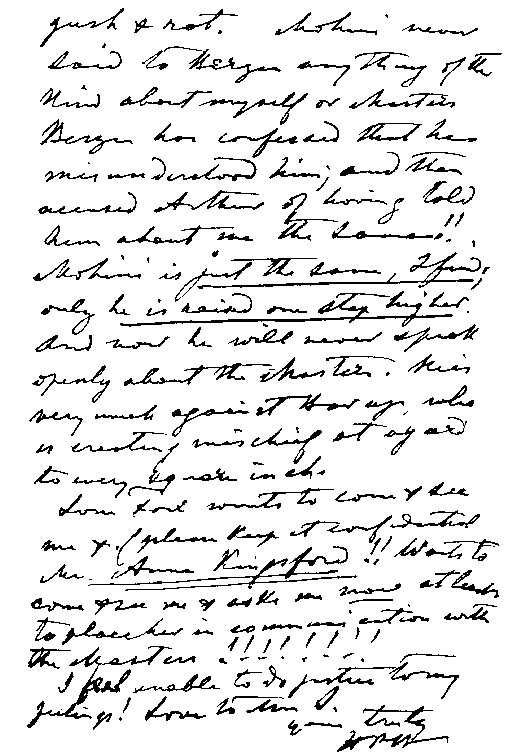 gush & rot. Mohini never
said to Bergen anything of the
kind about myself or Masters
Bergen has confessed that he has
misunderstood him; and then
accused Arthur of having told
him about me the same!!
Mohini is just the same, I find;
only he is raised one step higher.
And now he will never speak
openly about the Masters. He is
very much against who
is creating mischief at a yard
to every square inch.
wants to come & see
me & (please keep it confidential
Mrs. Anna Kingsford!! Wants to
come & see me & asks me now at least
to place her in communication with
the Masters !!!!!!!!
I feel unable to do justice to my
feelings! Love to
yours truly
HPB